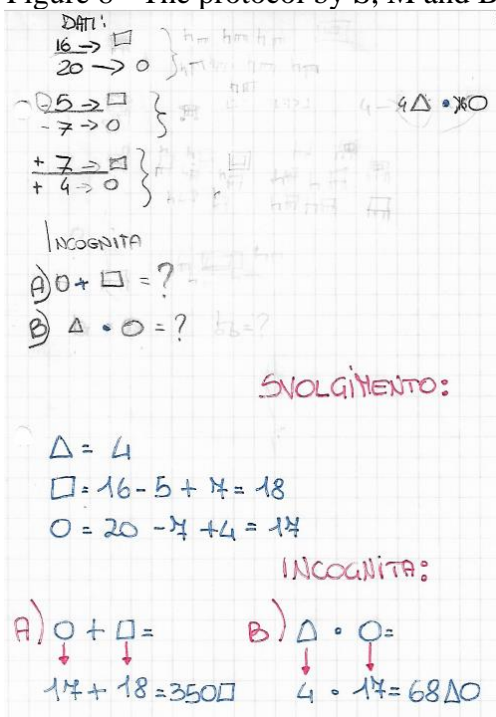 Figure 8 - The protocol by S, M and B
DATI:
16 → □
20 → ○
- 5 → □
- 7 → ○
4 △ • ○
+ 7 → □
+ 4 → ○
INCOGNITA
A) ○ + □ = ?
B) △ • ○ = ?
SVOLGIMENTO:
△ = 4
□ = 16 - 5 + 7 = 18
○ = 20 - 7 + 4 = 17
INCOGNITA:
A) ○ + □ =
B) △ • ○ =
17 + 18 = 35○□
4 • 17 = 68△○